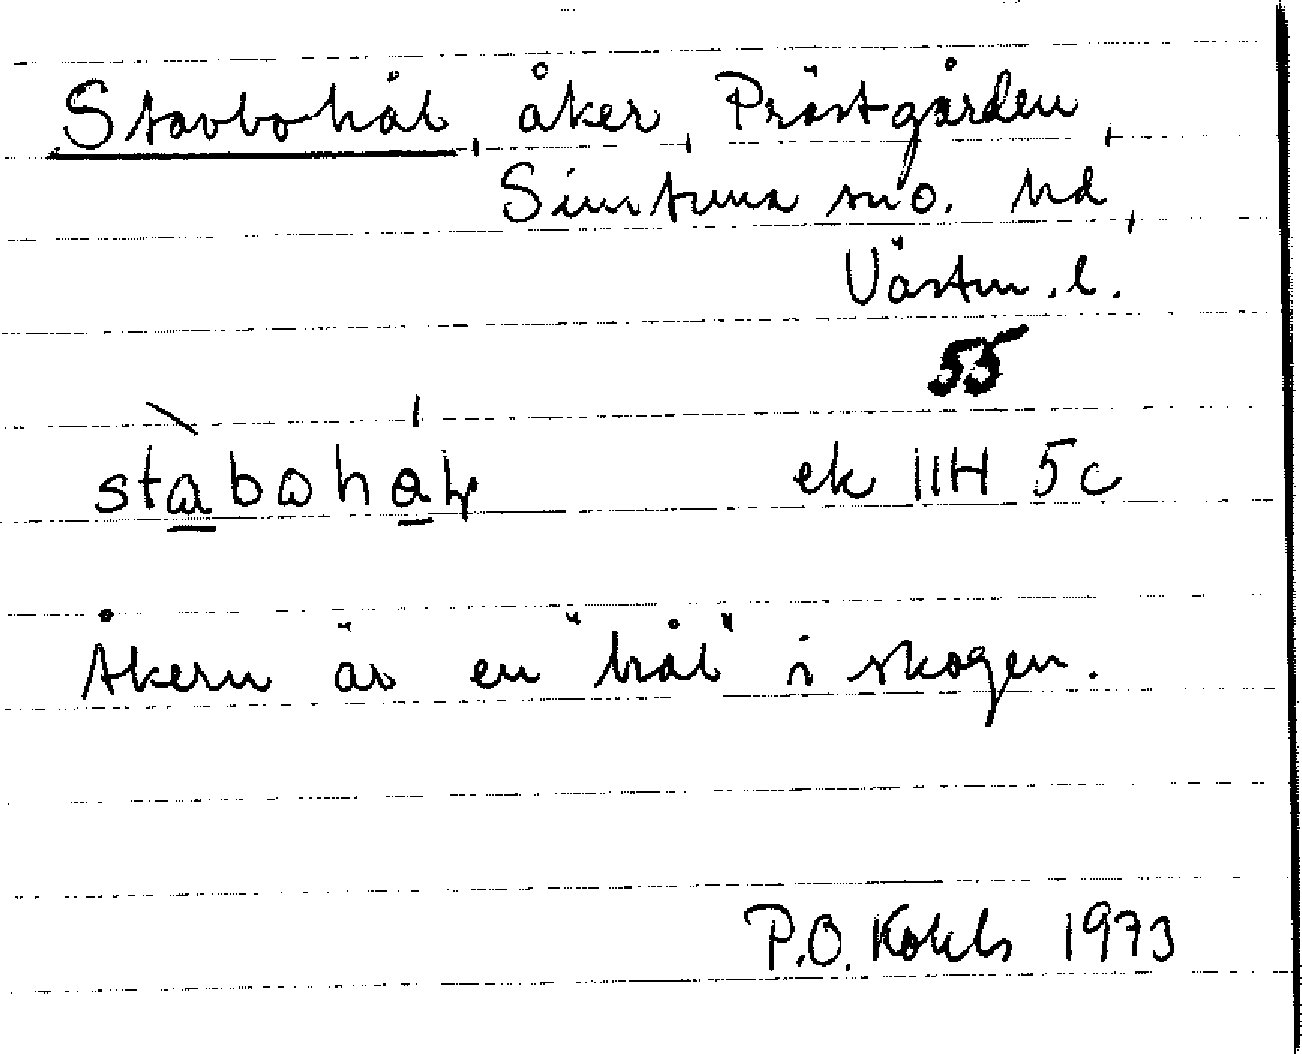 Stavbohål, åker, Prästgården,
Simtuna sn o. hd,
Västm. l.
55
stabohål
ek 11H 5c
Åkern är en "hål" i skogen.
P.O. 1973